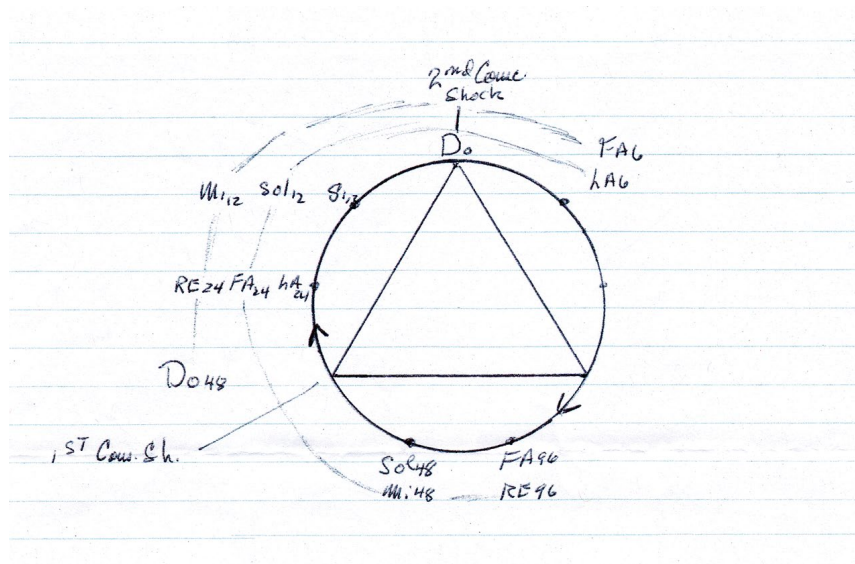 2nd Consc.
Shock
Do
FA6
LA6
Mi12 Sol12 Si12
RE24 FA24 LA24
Do48
1ST Con. Sh.
Sol48 FA96
Mi48 RE96